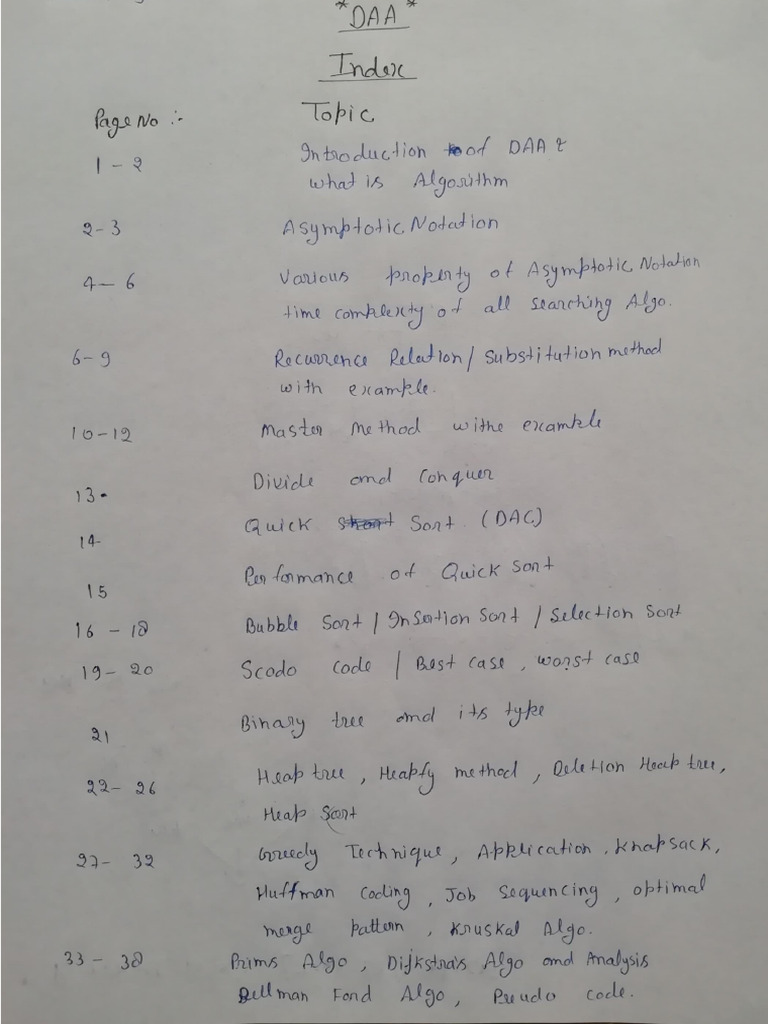 *DAA*
Index
Page No :- Topic
1 - 2 Introduction of DAA &
what is Algorithm
2-3 Asymptotic Notation
4 - 6 Various property of Asymptotic Notation
time complexty of all searching Algo.
6-9 Recurrence Relation / Substitution method
with example.
10-12 Master Method withe example
13. Divide and Conquer
14- Quick Sort (DAC)
15 Performance of Quick sort
16 - 18 Bubble Sort / Insertion Sort / Selection Sort
19 - 20 Scodo code / Best case, worst case
21 Binary tree and its type
22 - 26 Heap tree, Heapfy method, Deletion Heap tree,
Heap Sort
27 - 32 Greedy Technique, Application, Knapsack,
Huffman Coding, Job Sequencing, optimal
merge pattern, Kruskal Algo.
33 - 38 Prims Algo, Dijkstra's Algo and Analysis
Bellman Ford Algo, Pseudo code.